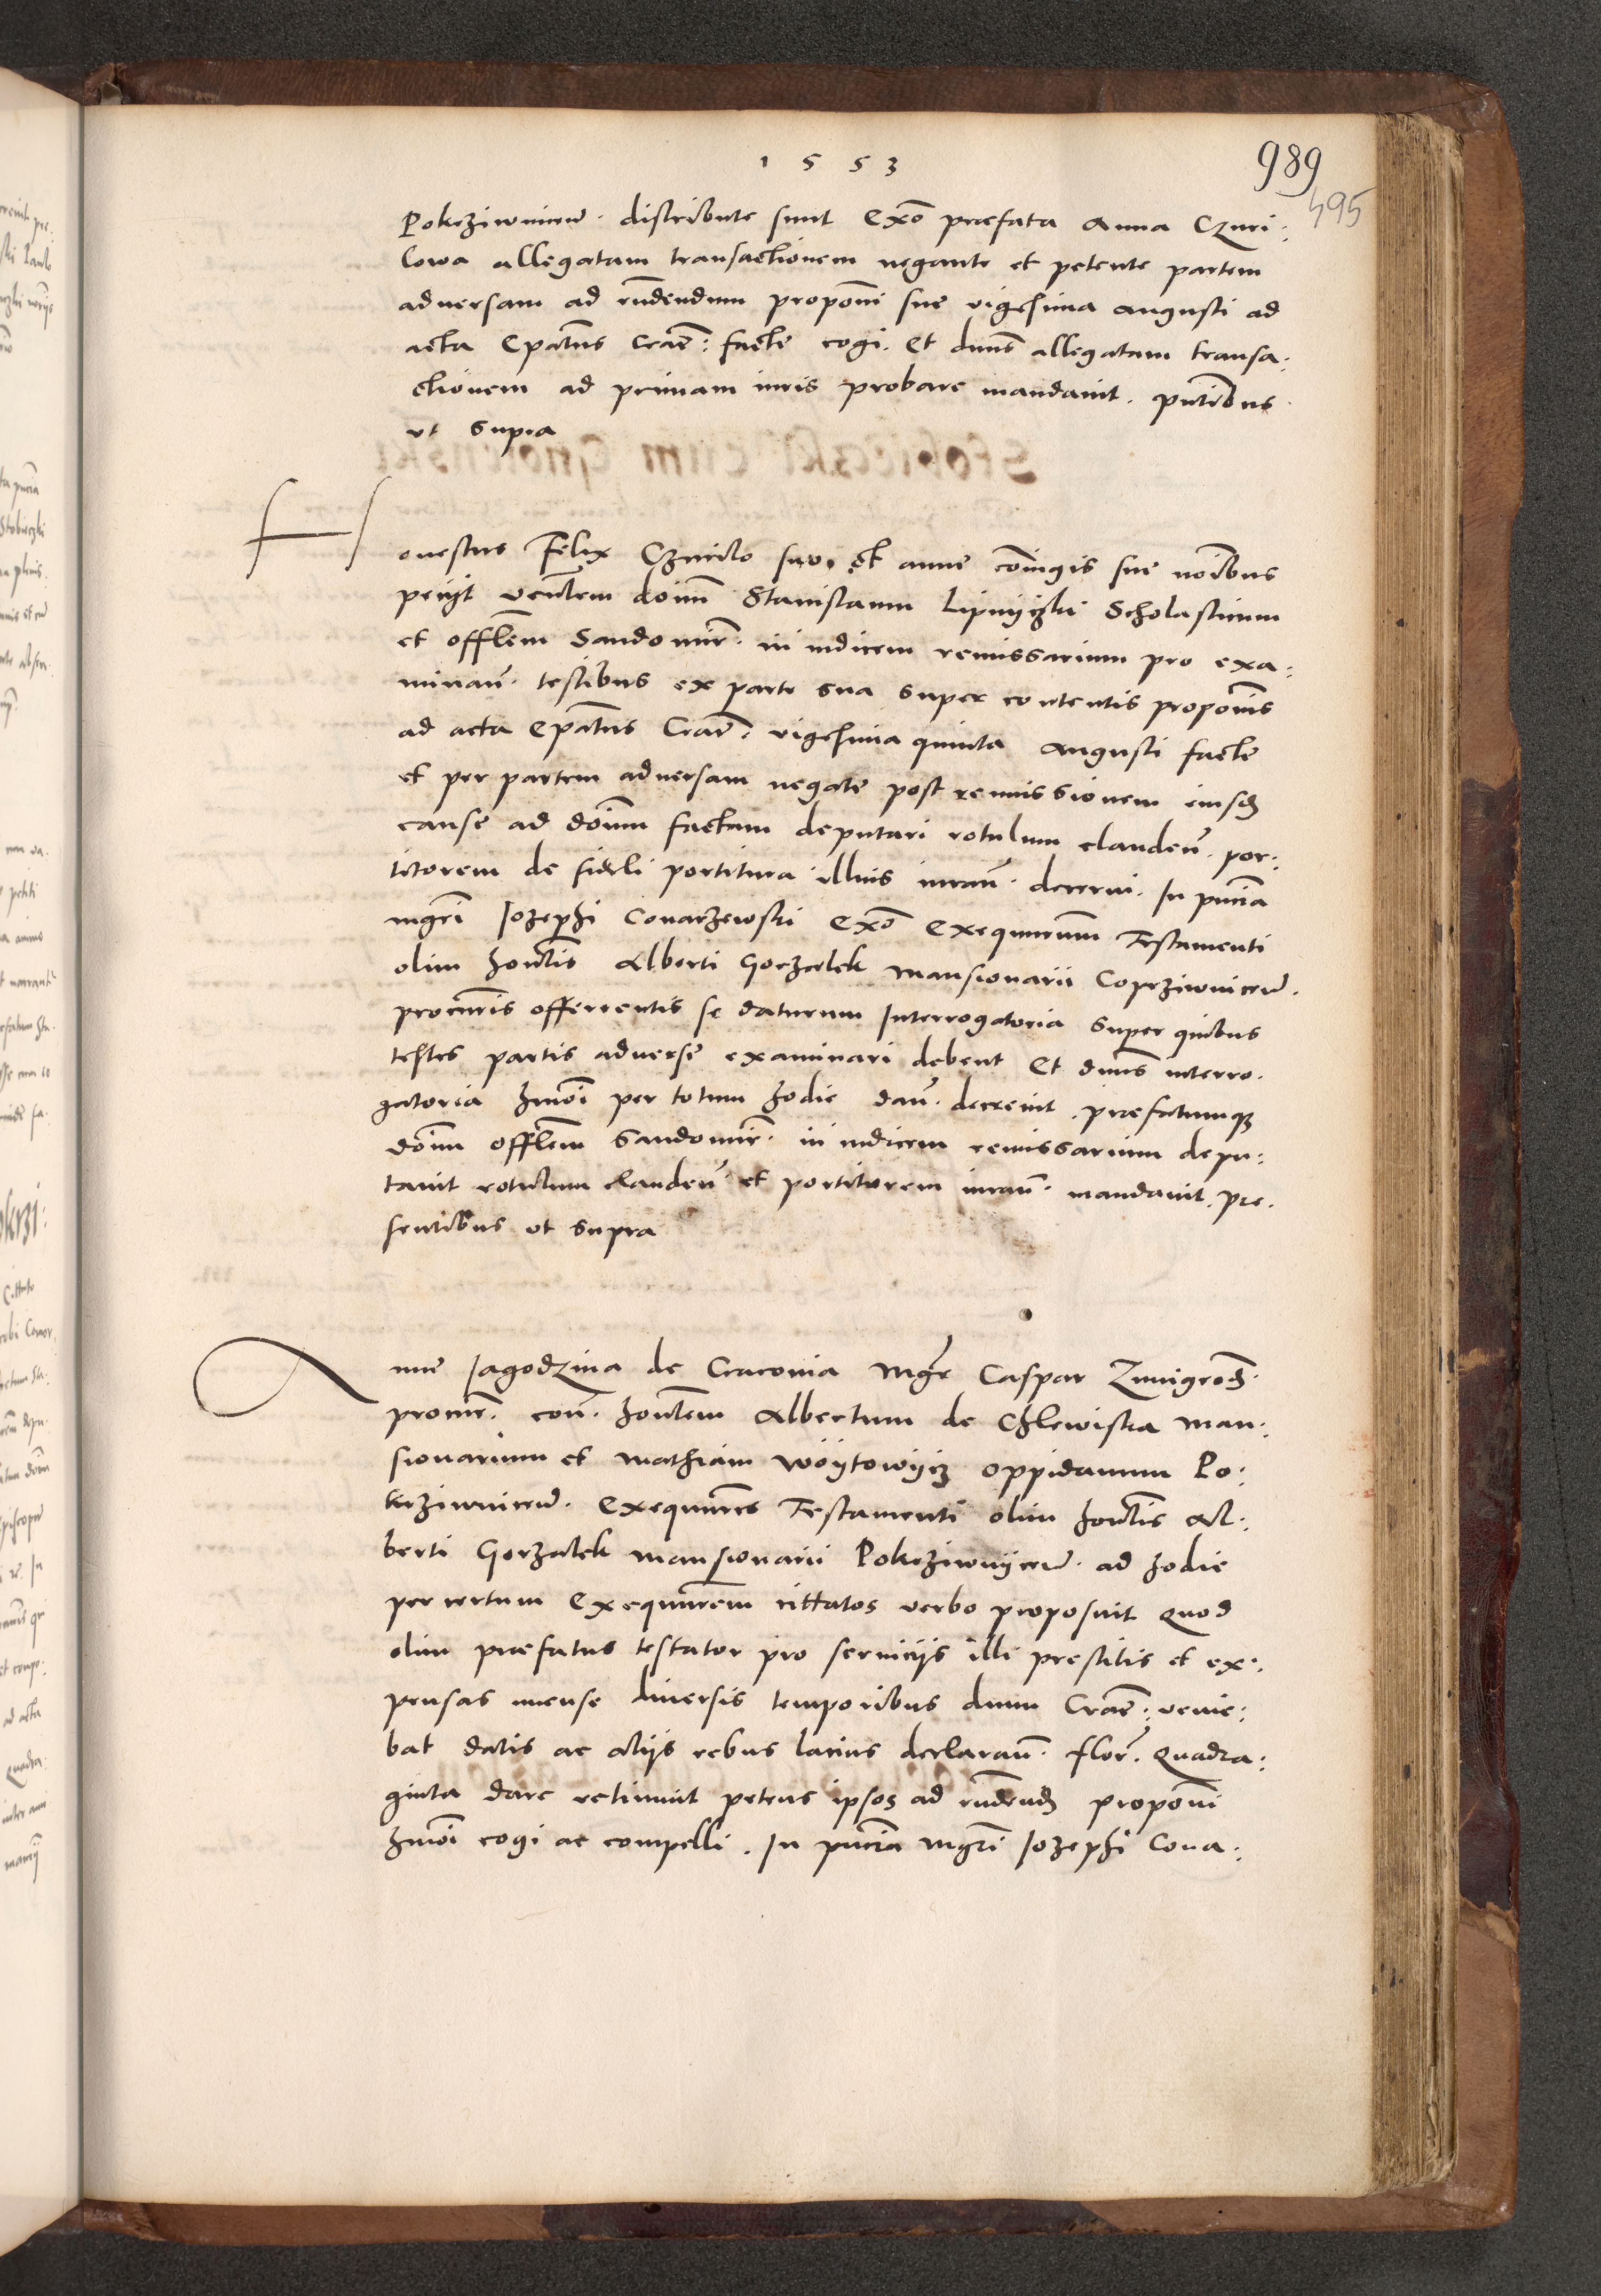 1553
989
495
Pokrziwnicen̄. distribute sunt Ex̄o praefata Anna Czuri:
lowa allegatam transactionem negante et petente partem
adversam ad rn̄dendum propon̄i sue vigesima Augusti ad
acta Ep̄atus Crac̄: facte cogi. Et dnn̄s allegatam transa:
ctionem ad primam iuris probare mandavit. pn̄tibus
ut supra
Honestus Felix Czurilo suo et Anne con̄iugis sue no͞ibus
petijt ven̄lem doim̄ Stanislaum Lipnyczki Scholasticum
et offlēm Sandomir̄. in iudicem remissarium pro exa:
minan̄. testibus ex parte sua super contentis propon̄is
ad acta Ep̄atus Crac̄: vigesima quinta Augusti facte
et per partem adversam negate post remissionem eiusd̄
cause ad doim̄ factam deputari rotulum clauden̄. por:
titorem de fideli portitura illius iuran̄. decerni. In pn̄cia
mgr̄i Jozephi Conarzewski Ex̄o Exequutorum Testamenti
olim hon̄lis Alberti Gorzalek mansionarii Coprziwnicen̄.
procur̄is offerentis se daturum Interrogatoria super quibus
testes partis adverse examinari debent Et dnn̄s interro.
gatoria hm̄oi per totum hodie dan̄. decrevit. praefatumq
doim̄ offlēm Sandomir̄. in iudicem remissarium depu:
tavit rotulum clauden̄ et portitorem iuran̄. mandavit. pre.
sentibus ut supra
Anne Jagodzina de Cracovia Mgr̄ Caspar Zmigrod̄.
procur̄. con̄. hon̄lem Albertum de Chlewiska man:
sionarium et Mathiam Woytowycz oppidanum Po:
krziwnicen̄. Exequutores Testamenti olim hon̄lis Al:
berti Gorzalek mansionarii Pokrziwnycen̄. ad hodie
per certum Exequutorem cittatos verbo proposuit quod
olim praefatus testator pro servicijs illi prestitis et ex:
pensas mense diversis temporibus dum Crac̄: venie:
bat datis ac alijs rebus latius declaran̄. flor̄. quadra:
ginta dare retinuit petens ipsos ad rn̄dend̄ propon̄i
hm̄oi cogi ac compelli. In pn̄cia Mgr̄i Jozephi Cona: